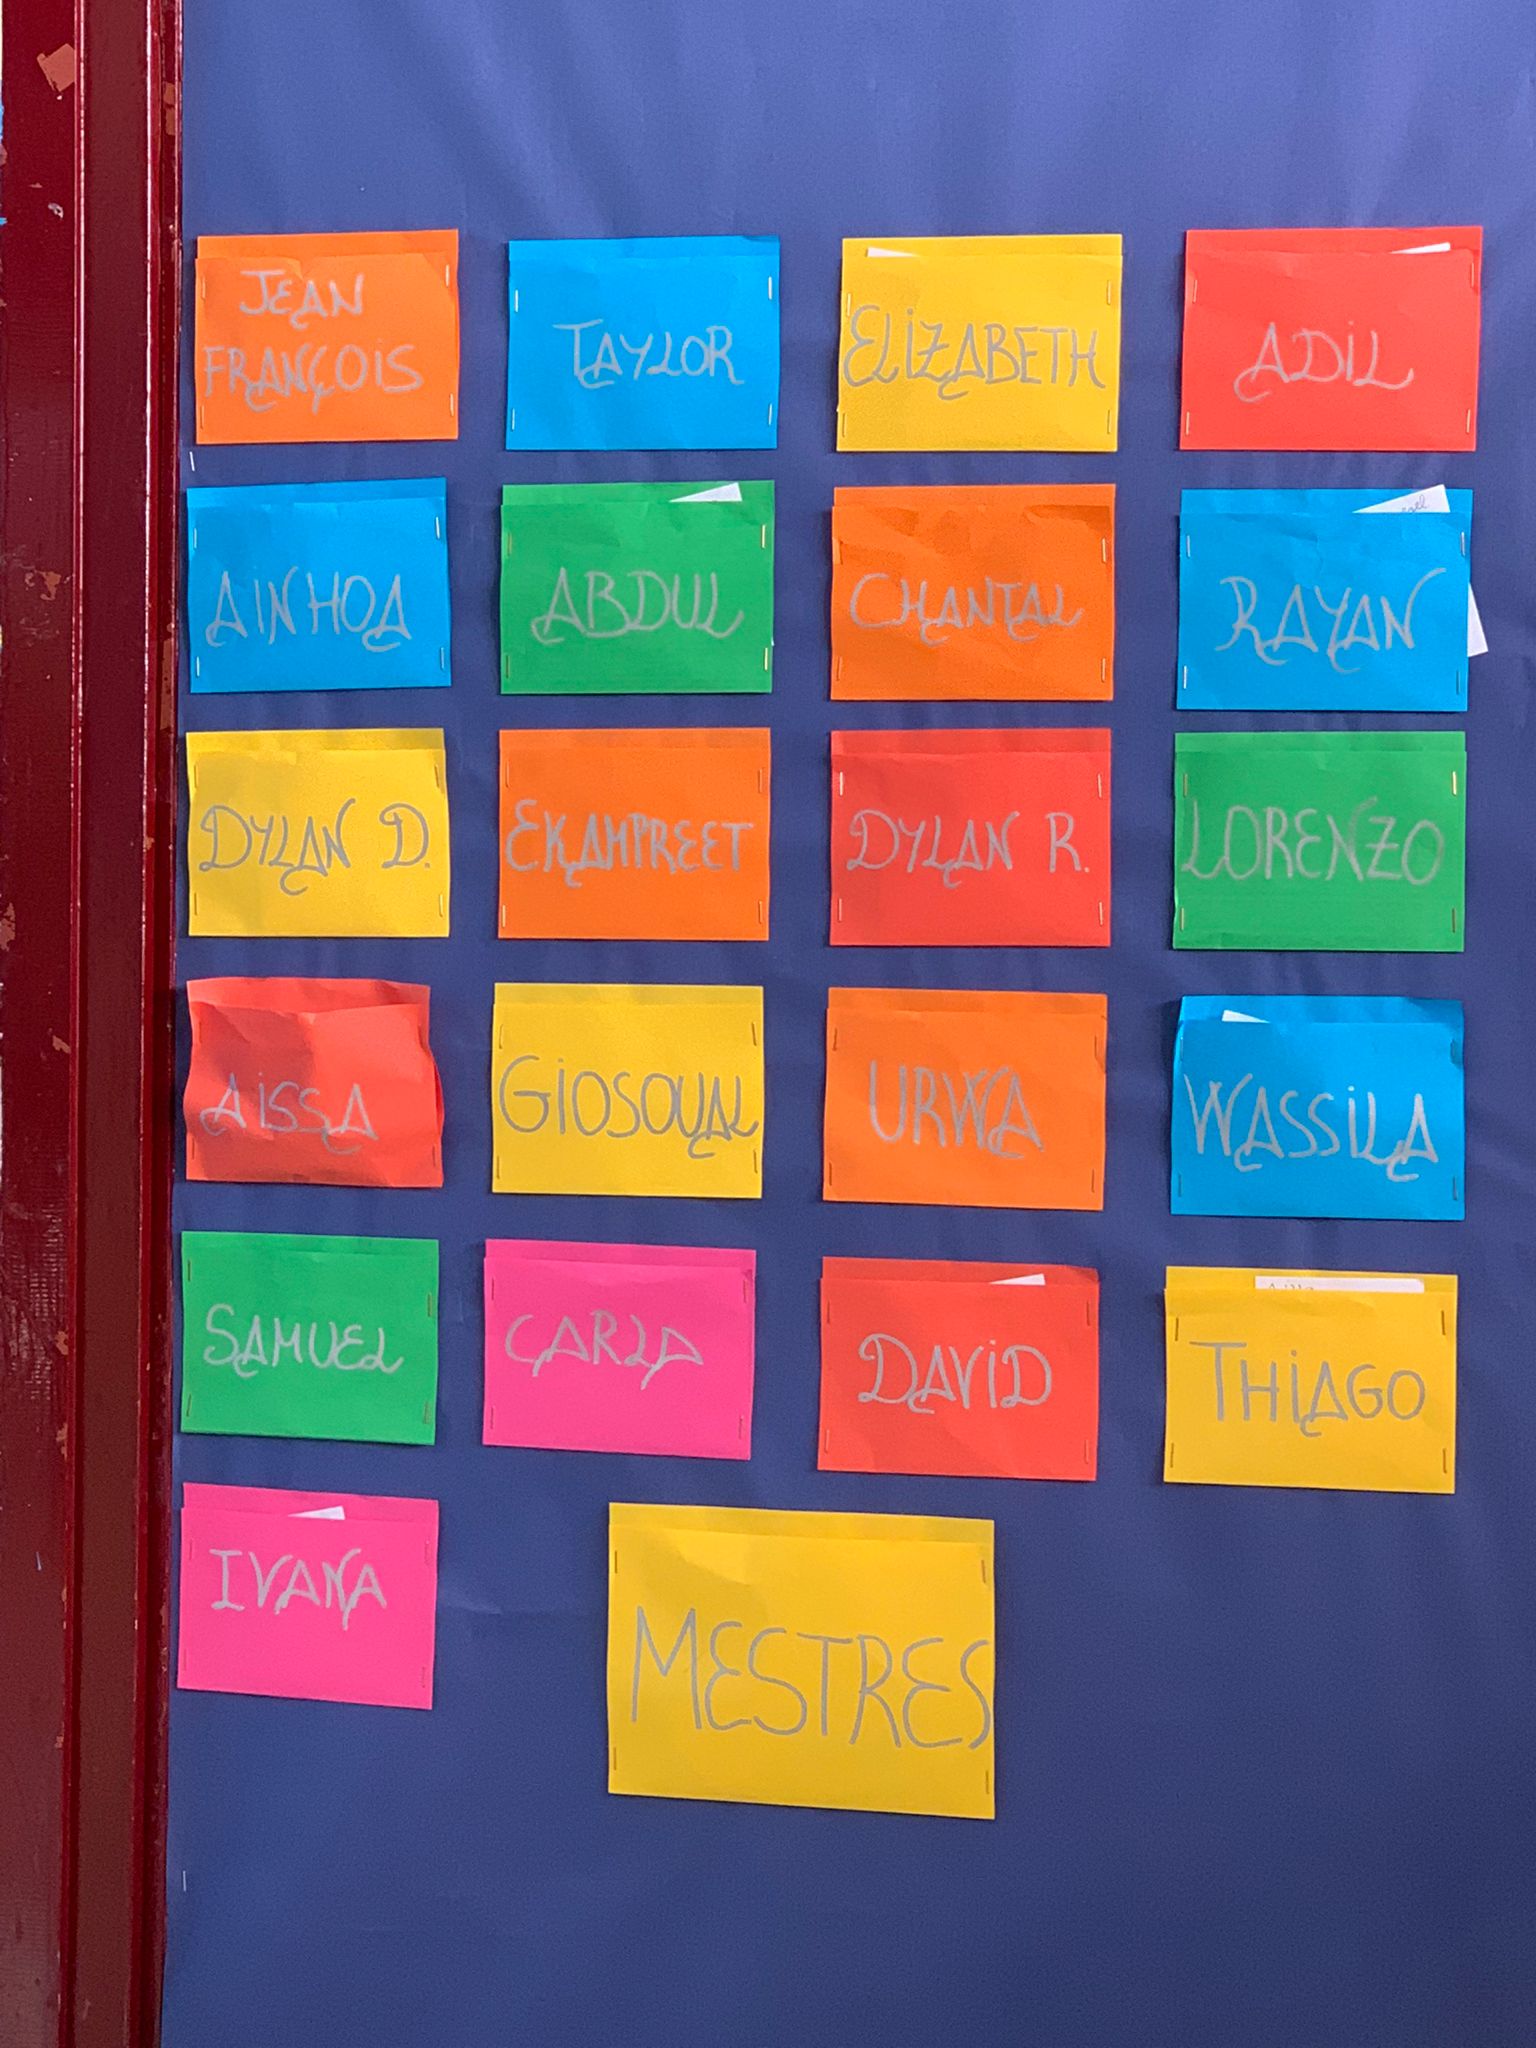 JEAN
FRANÇOIS
TAYLOR
ELIZABETH
ADIL
AINHOA
ABDUL
CHANTAL
RAYAN
DYLAN D.
EKAMPREET
DYLAN R.
LORENZO
AISSA
GIOSOUAL
URWA
WASSILA
SAMUEL
CARLA
DAVID
THIAGO
IVANA
MESTRES